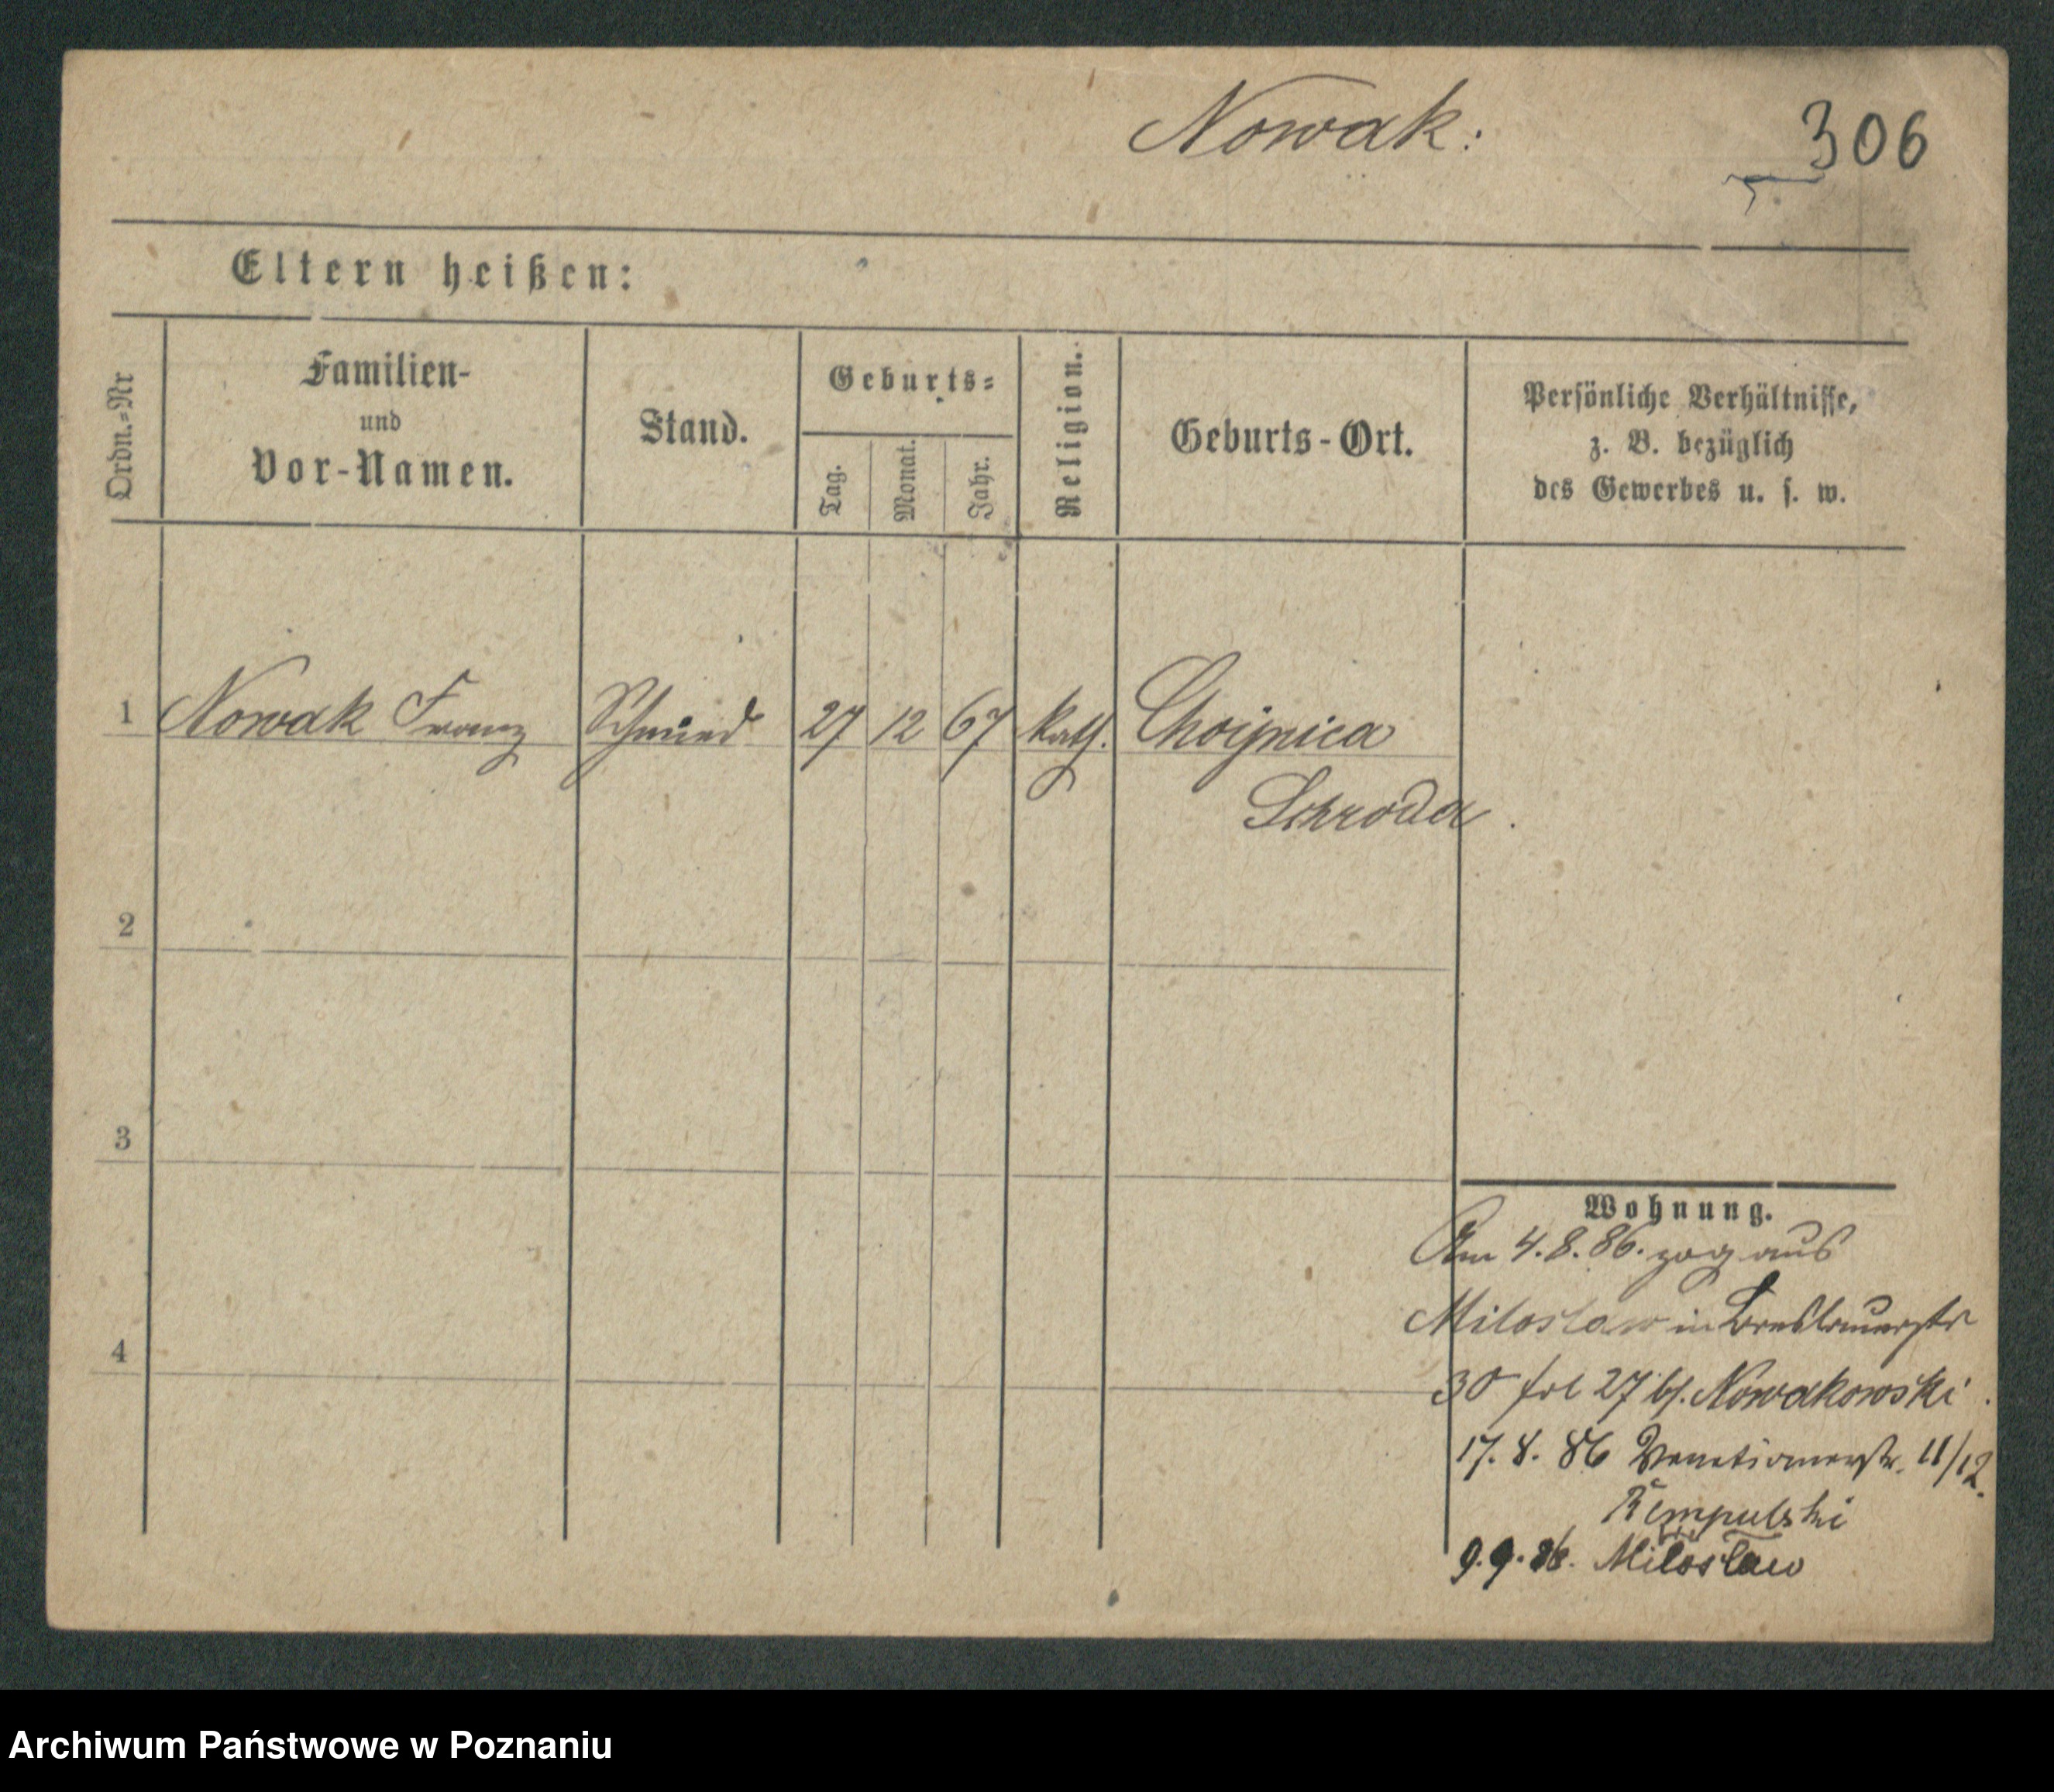 Nowak:
306
Eltern heißen:
Ordn.=Nr
Familien-
und
Vor-Namen.
Stand.
Geburts=
Tag.
Monat.
Jahr.
Religion.
Geburts-Ort.
Persönliche Verhältnisse,
z. B. bezüglich
des Gewerbes u. s. w.
1 Nowak Franz Schmied 27 12 67 kath. Choijnica
Schroda.
2
3
4
Wohnung.
Am 4.8.86. zog aus
Miloslaw in Breslauerstr
30 frl 27 bh. Nowakowski.
17. 8. 86 Venetianerstr. 11/12.
Rempulski
9.9.86. Miloslaw
Archiwum Państwowe w Poznaniu